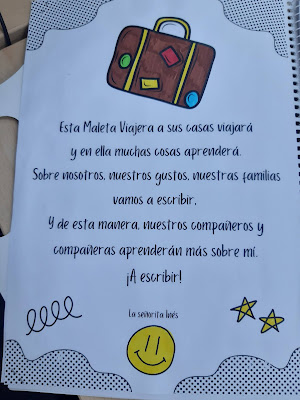 Esta Maleta Viajera a sus casas viajará
y en ella muchas cosas aprenderá.
Sobre nosotros, nuestros gustos, nuestras familias
vamos a escribir,
Y de esta manera, nuestros compañeros y
compañeras aprenderán más sobre mí.
¡A escribir!
La señorita Inés